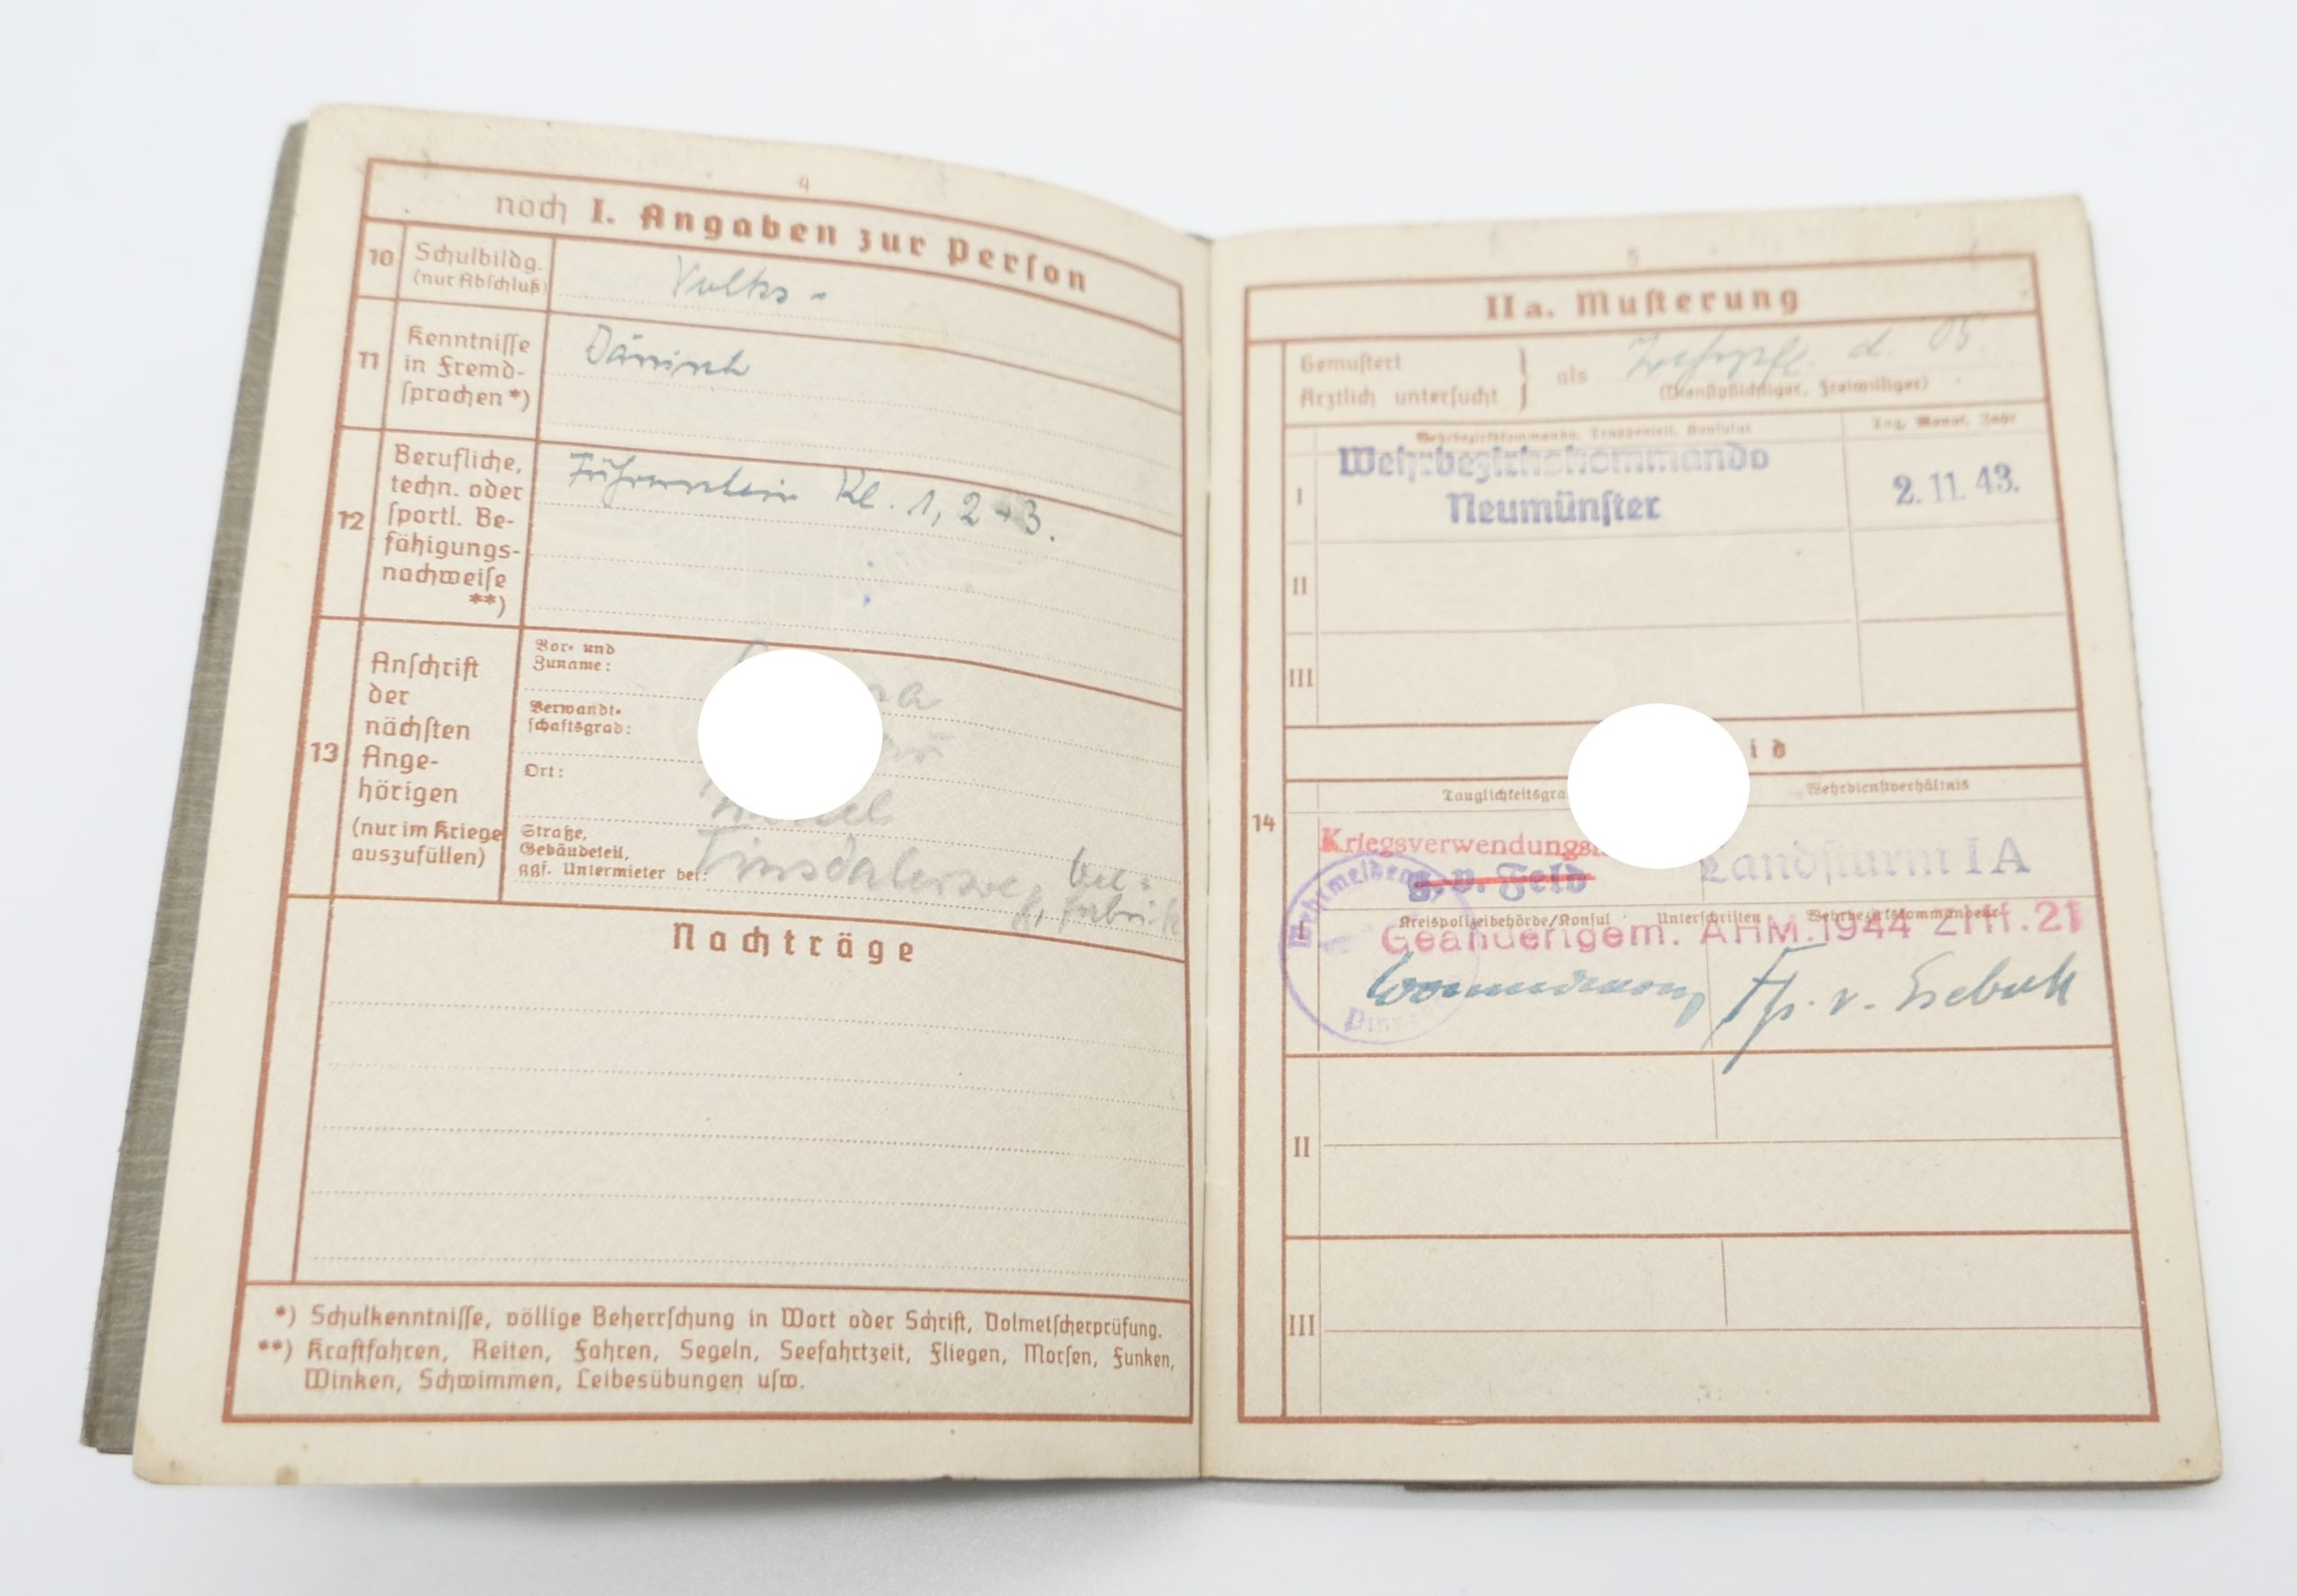 4
noch I. Angaben zur Person
10
Schulbildg.
(nur Abschluß)
Volks -
11
Kenntnisse
in Fremd-
sprachen *)
Dänisch
12
Berufliche,
techn. oder
sportl. Be-
fähigungs-
nachweise
**)
Führerschein Kl. 1, 2 + 3.
13
Anschrift
der
nächsten
Ange-
hörigen
(nur im Kriege
auszufüllen)
Vor- und
Zuname:
Verwandt-
schaftsgrad:
Ort:
Straße,
Gebäudeteil,
ggf. Untermieter bei:
Tinsdalerweg,
Nachträge
*) Schulkenntnisse, völlige Beherrschung in Wort oder Schrift, Dolmetscherprüfung.
**) Kraftfahren, Reiten, Fahren, Segeln, Seefahrtzeit, Fliegen, Morsen, Funken,
Winken, Schwimmen, Leibesübungen usw.
5
II a. Musterung
Gemustert
Ärztlich untersucht
als
d. B.
(Dienstpflichtiger, Freiwilliger)
Wehrbezirkskommando, Truppenteil, Konsulat
Tag, Monat, Jahr
I
Wehrbezirkskommando
Neumünster
2. 11. 43.
II
III
id
14
Wehrdienstverhältnis
g. v. Feld
Landsturm I A
Kreispolizeibehörde/Konsul Unterschriften Wehrbezirkskommandeur
Geändert gem. AHM. 1944 Ziff. 21
I
II
III